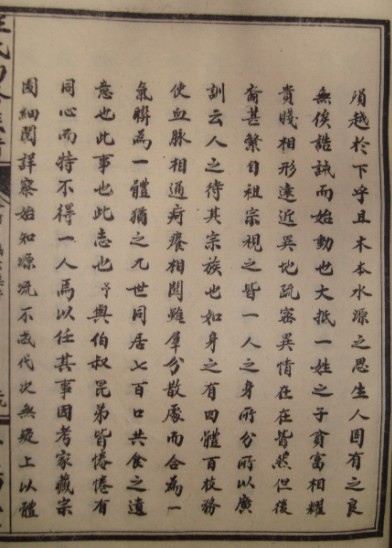 須越於下乎且木本水源之思生人固有之良
無俟誥誡而始動也大抵一姓之子貧富相耀
貴賤相形遠近異地疏密異情在在皆然但後
裔甚繁自祖宗視之皆一人之身所分所以廣
訓云人之待其宗族也如身之有四體百枝務
使血脉相通疴癢相關雖羣分散處而合為一
氣聯為一體猶之九世同居七百口共食之遺
意也此事也此志也予與伯叔昆弟皆惓惓有
同心而特不得一人焉以任其事因考家藏宗
圖細閱詳察始知源流不或代次無疑上以體